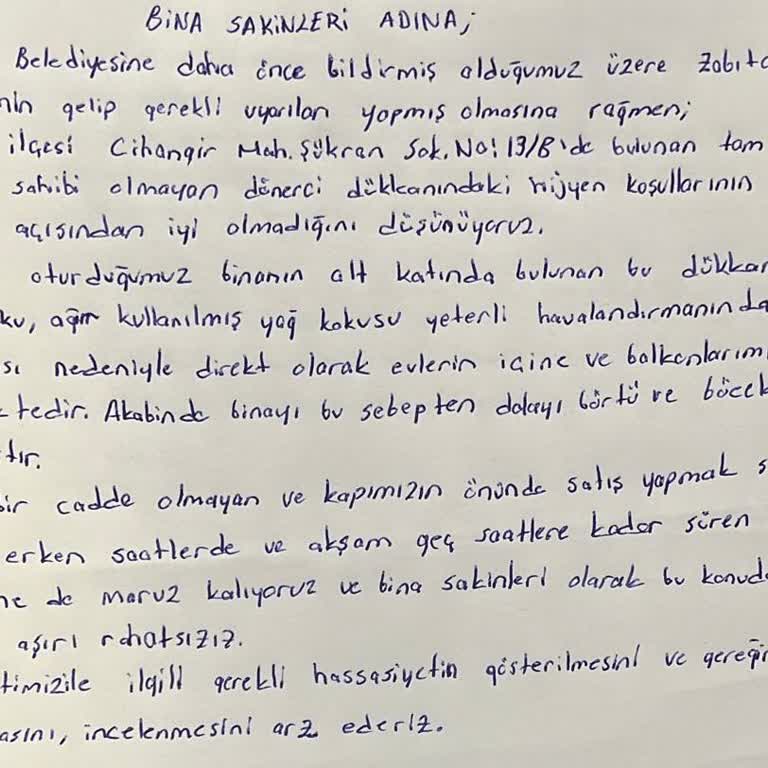 BİNA SAKİNLERİ ADINA;
Belediyesine daha önce bildirmiş olduğumuz üzere zabıta
nin gelip gerekli uyarıları yapmış olmasına rağmen;
ilçesi Cihangir Mah. Şükran Sok. No: 13/B'de bulunan tam
sahibi olmayan dönerci dükkanındaki hijyen koşullarının
açısından iyi olmadığını düşünüyoruz.
oturduğumuz binanın alt katında bulunan bu dükkan
ku, ağır kullanılmış yağ kokusu yeterli havalandırmanında
sı nedeniyle direkt olarak evlerin içine ve balkonlarım
ktedir. Akabinde binayı bu sebepten dolayı börtü ve böcek
tır.
bir cadde olmayan ve kapımızın önünde satış yapmak s
erken saatlerde ve akşam geç saatlere kadar süren
ne de maruz kalıyoruz ve bina sakinleri olarak bu konuda
aşırı rahatsızız.
timizile ilgili gerekli hassasiyetin gösterilmesini ve gereğin
asını, incelenmesini arz ederiz.